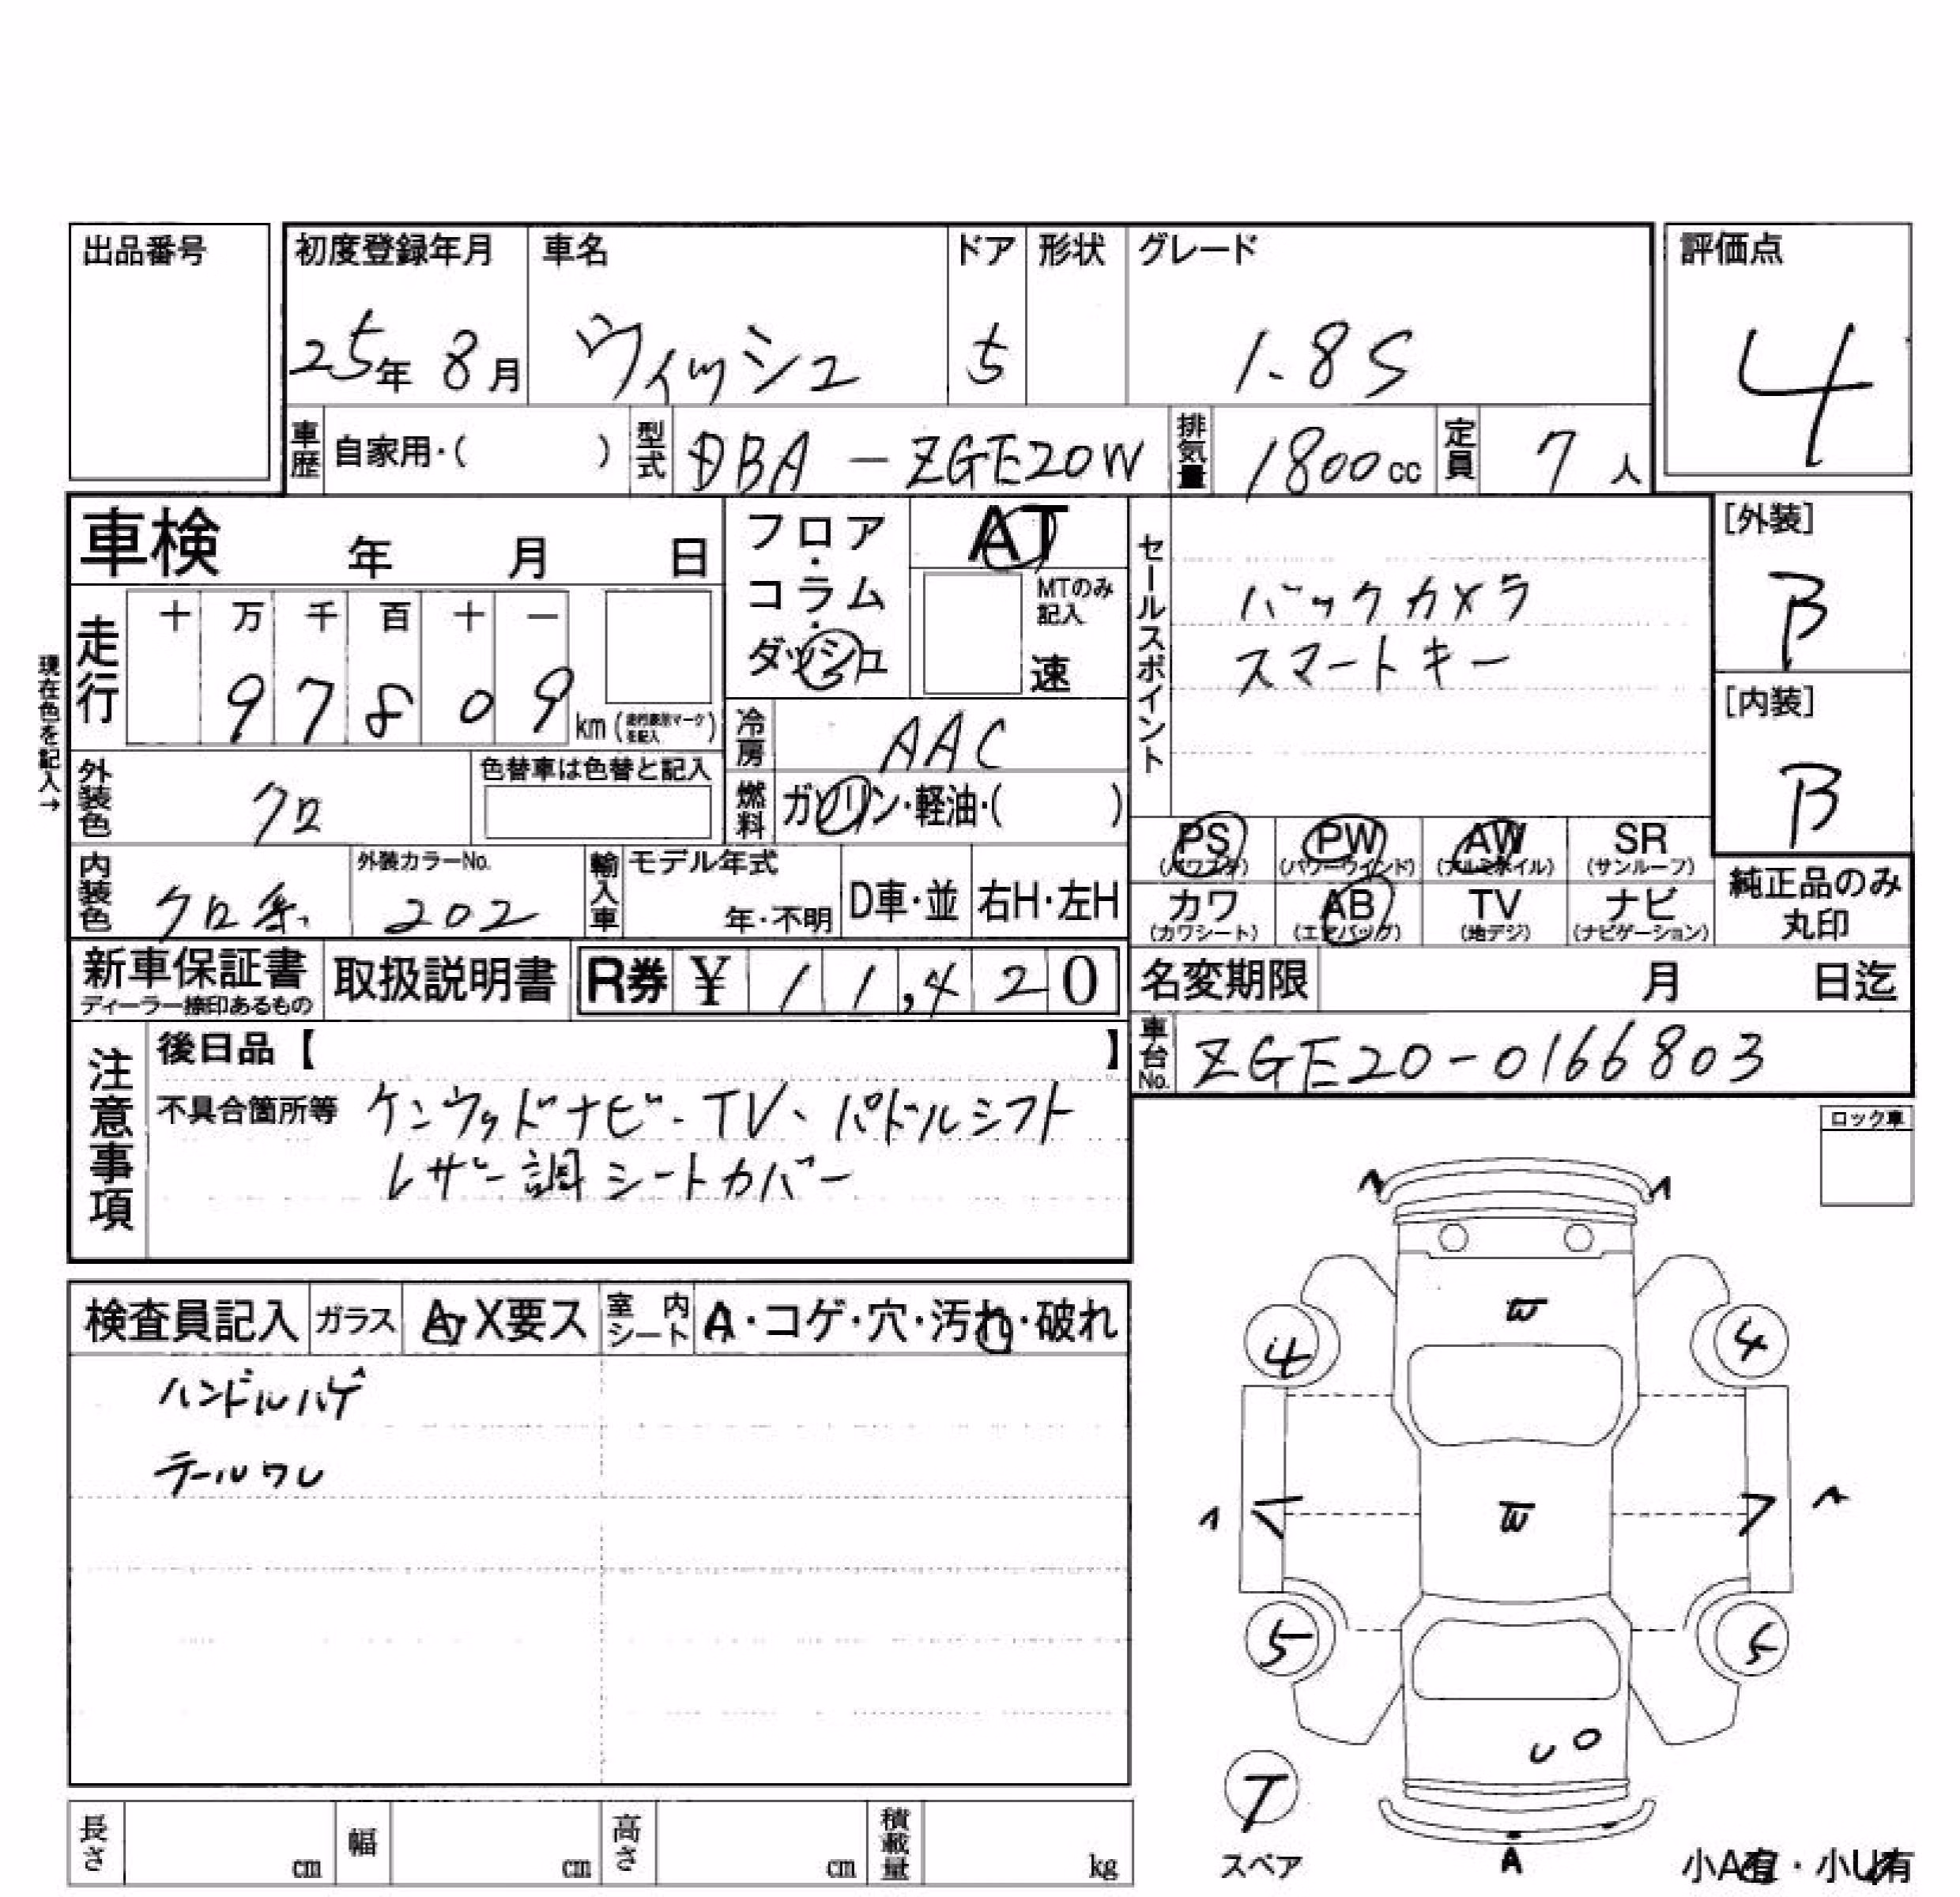 出品番号
初度登録年月 車名 ドア 形状 グレード 評価点
25年 8月 ウィッシュ 5 1.8S 4
車歴 自家用・( ) 型式 DBA-ZGE20W 排気量 1800cc 定員 7人
車検 年 月 日
フロア・コラム・ダッシュ
AT
MTのみ記入
速
セールスポイント
バックカメラ
スマートキー
[外装]
B
[内装]
B
現在色を記入→
走行 十 万 千 百 十 一
97809 km
冷房 AAC
外装色 クロ 色替車は色替と記入
燃料 ガソリン・軽油・( )
PS PW AW SR
(パワステ) (パワーウインド) (アルミホイル) (サンルーフ)
カワ AB TV ナビ
(カワシート) (エアバッグ) (地デジ) (ナビゲーション)
純正品のみ
丸印
内装色 クロ系 外装カラーNo. 202 輸入車 モデル年式 年・不明 D車・並 右H・左H
新車保証書 取扱説明書 R券 ¥ 11,420
ディーラー捺印あるもの
名変期限 月 日迄
車台No. ZGE20-0166803
注意事項
後日品【 】
不具合箇所等 ケンウッドナビ・TV、パドルシフト
レザー調シートカバー
ロック車
検査員記入 ガラス A・X要ス 室内シート A・コゲ・穴・汚れ・破れ
ハンドルハゲ
テールワレ
W
4 4
W
5 5
U
T
スペア
A
小A有・小U有
長さ cm 幅 cm 高さ cm 積載量 kg